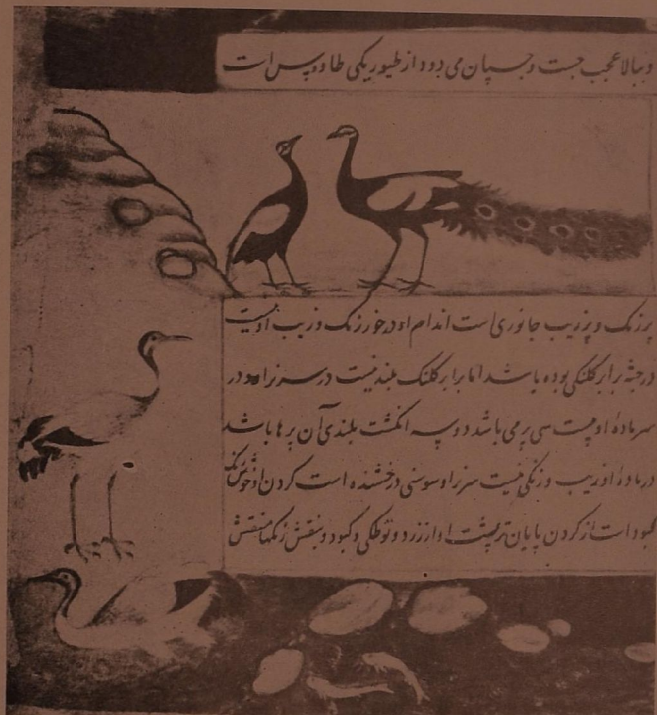 و ببالا عجب جست و چسپان می دود از طیور یکی طاووس است
پر رنگ و پر زیب جانوری است اندام او در خور رنگ و زیب او نیست
در جثه برابر کلنکی بوده باشد اما برابر کلنک بلند نیست در سر نر او و در
سر مادهٔ او بیست سی پر می باشد دو سه انکشت بلندی آن پر ها باشد
در مادهٔ او زیب و رنگی نیست سر نر او سوسنی درخشنده است کردن او خوش رنک
کبود است از کردن پایان تر پشت او از زرد و توطکی و کبود و بنفش رنکها منقش